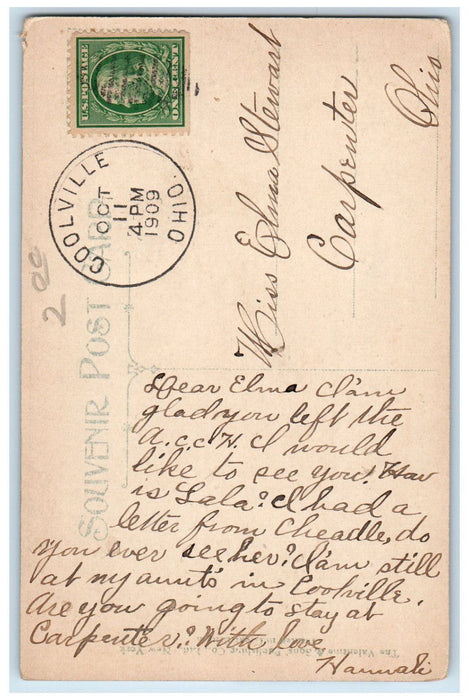 U.S. POSTAGE
ONE CENT
COOLVILLE
OHIO.
OCT
11
4 PM
1909
2 00
SOUVENIR POST CARD
Miss Elma Stewart
Carpenter
Ohio
Dear Elma I am
glad you left the
A.C.C.H. I would
like to see you! How
is Lala? I had a
letter from Cheadle, do
you ever see her? I am still
at my aunts in Coolville.
Are you going to stay at
Carpenter? With love
Hannah
The Valentine & Sons Publishing Co., Ltd. New York